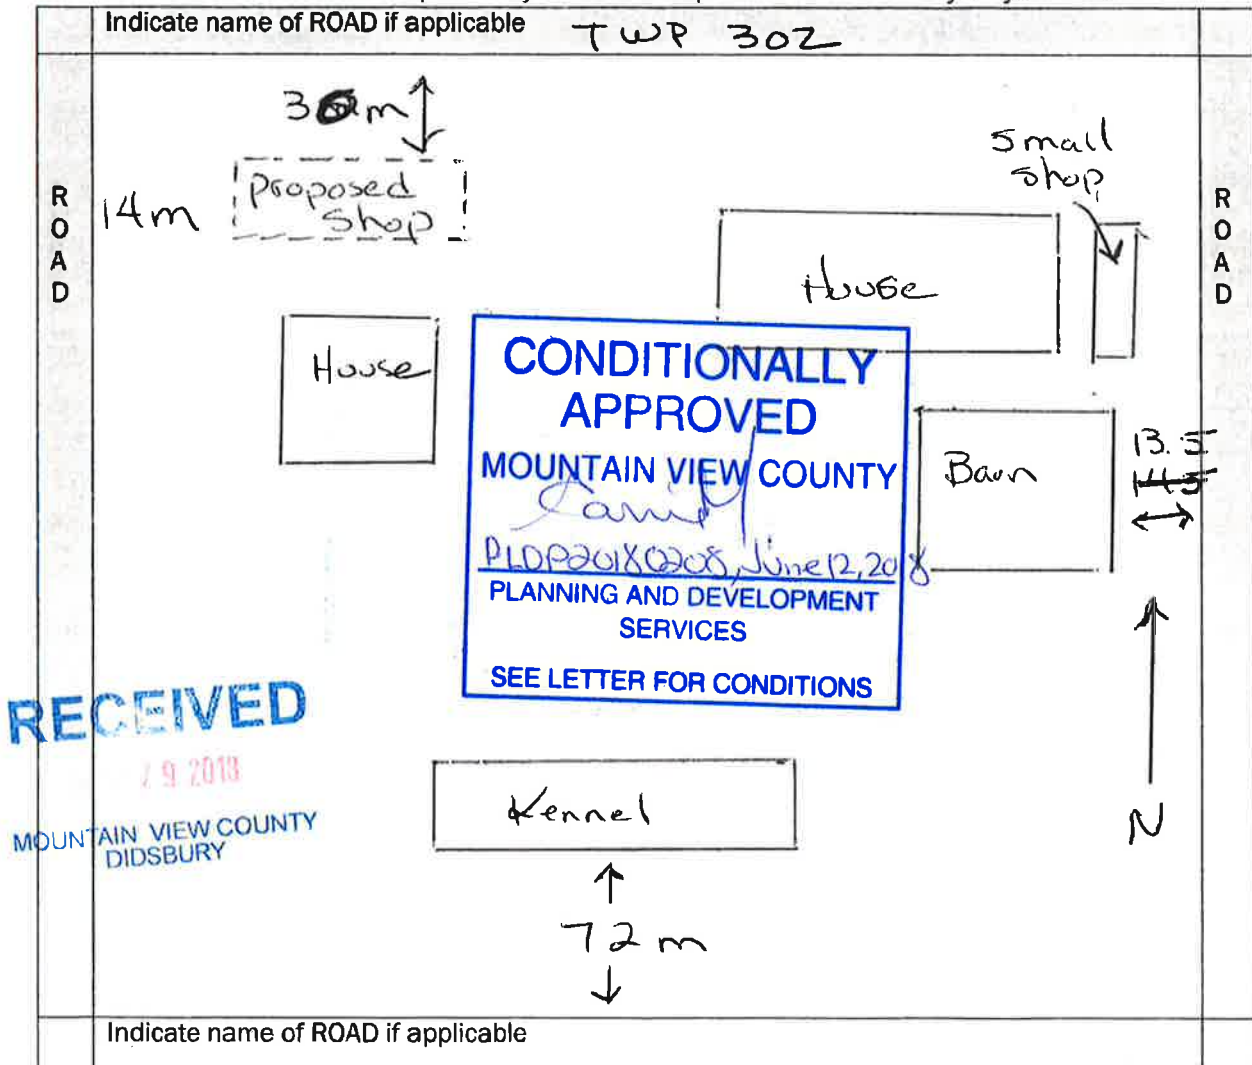 Indicate name of ROAD if applicable
TWP 302
30m
Small
shop
ROAD
14m
Proposed
Shop
ROAD
House
House
CONDITIONALLY
APPROVED
MOUNTAIN VIEW COUNTY
PLDP20180208, June 12, 2018
PLANNING AND DEVELOPMENT
SERVICES
SEE LETTER FOR CONDITIONS
Barn
13.5
14.5
RECEIVED
29 2018
MOUNTAIN VIEW COUNTY
DIDSBURY
Kennel
N
72 m
Indicate name of ROAD if applicable